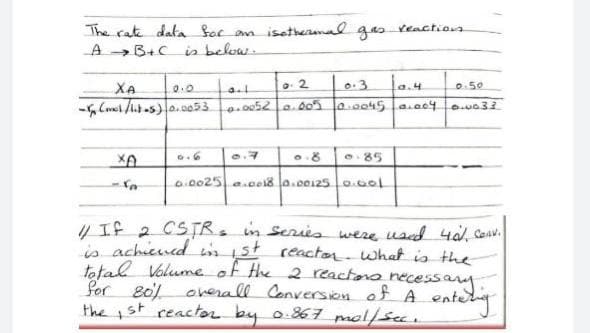 The rate data for an isothermal gas reaction
A → B+C is below.
XA 0.0 0.1 0.2 0.3 0.4 0.50
-rA (mol/lit.s) 0.0053 0.0052 0.005 0.0045 0.004 0.0033
XA 0.6 0.7 0.8 0.85
-rA 0.0025 0.0018 0.00125 0.001
// If 2 CSTRs in series were used 40% Conv.
is achieved in 1st reactor. What is the
total Volume of the 2 reactors necessary
for 80% overall Conversion of A entering
the 1st reactor by 0.867 mol/sec.